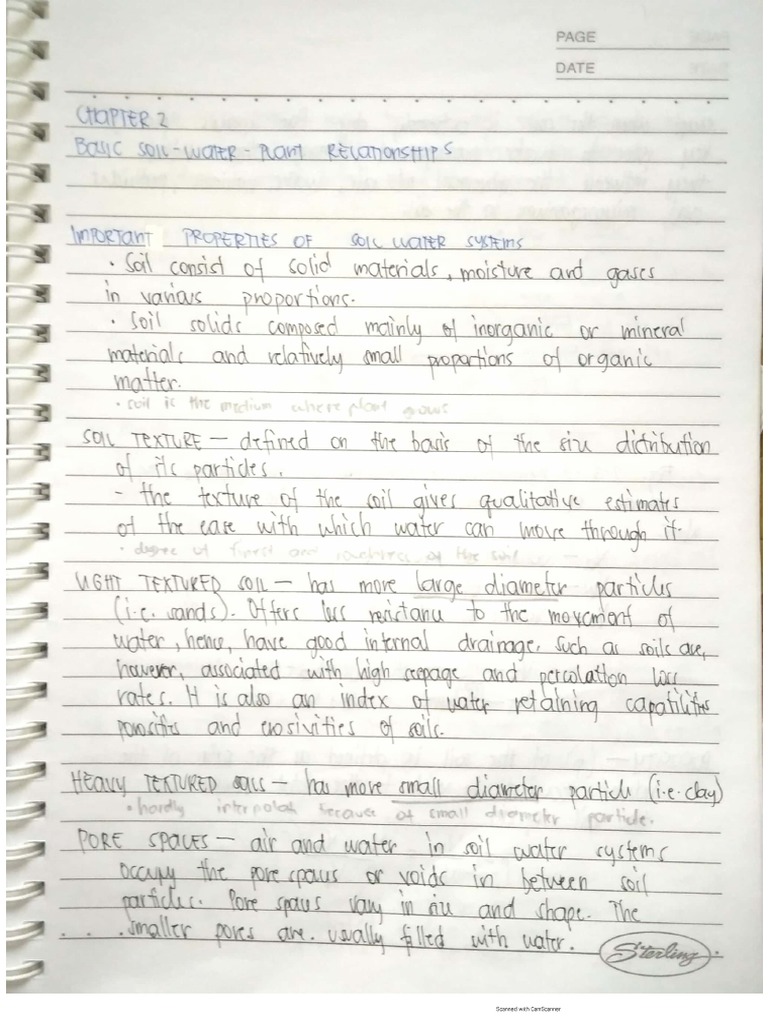 PAGE
DATE
CHAPTER 2
BASIC SOIL-WATER-PLANT RELATIONSHIPS
IMPORTANT PROPERTIES OF SOIL WATER SYSTEMS
• Soil consist of solid materials, moisture and gases
in various proportions.
• Soil solids composed mainly of inorganic or mineral
materials and relatively small proportions of organic
matter.
• soil is the medium where plant grows
SOIL TEXTURE — defined on the basis of the size distribution
of its particles.
- the texture of the soil gives qualitative estimates
of the ease with which water can move through it.
• degree of and of the soil
LIGHT TEXTURED SOIL — has more large diameter particles
(i.e. sands). Offers less resistance to the movement of
water, hence, have good internal drainage. Such as soils are,
however, associated with high seepage and percolation loss
rates. It is also an index of water retaining capabilities
porosities and erosivities of soils.
HEAVY TEXTURED SOILS — has more small diameter particle (i.e. clay)
• hardly because of small diameter particle.
PORE SPACES — air and water in soil water systems
occupy the pore spaces or voids in between soil
particles. Pore spaces vary in size and shape. The
smaller pores are usually filled with water.
Sterling
Scanned with CamScanner